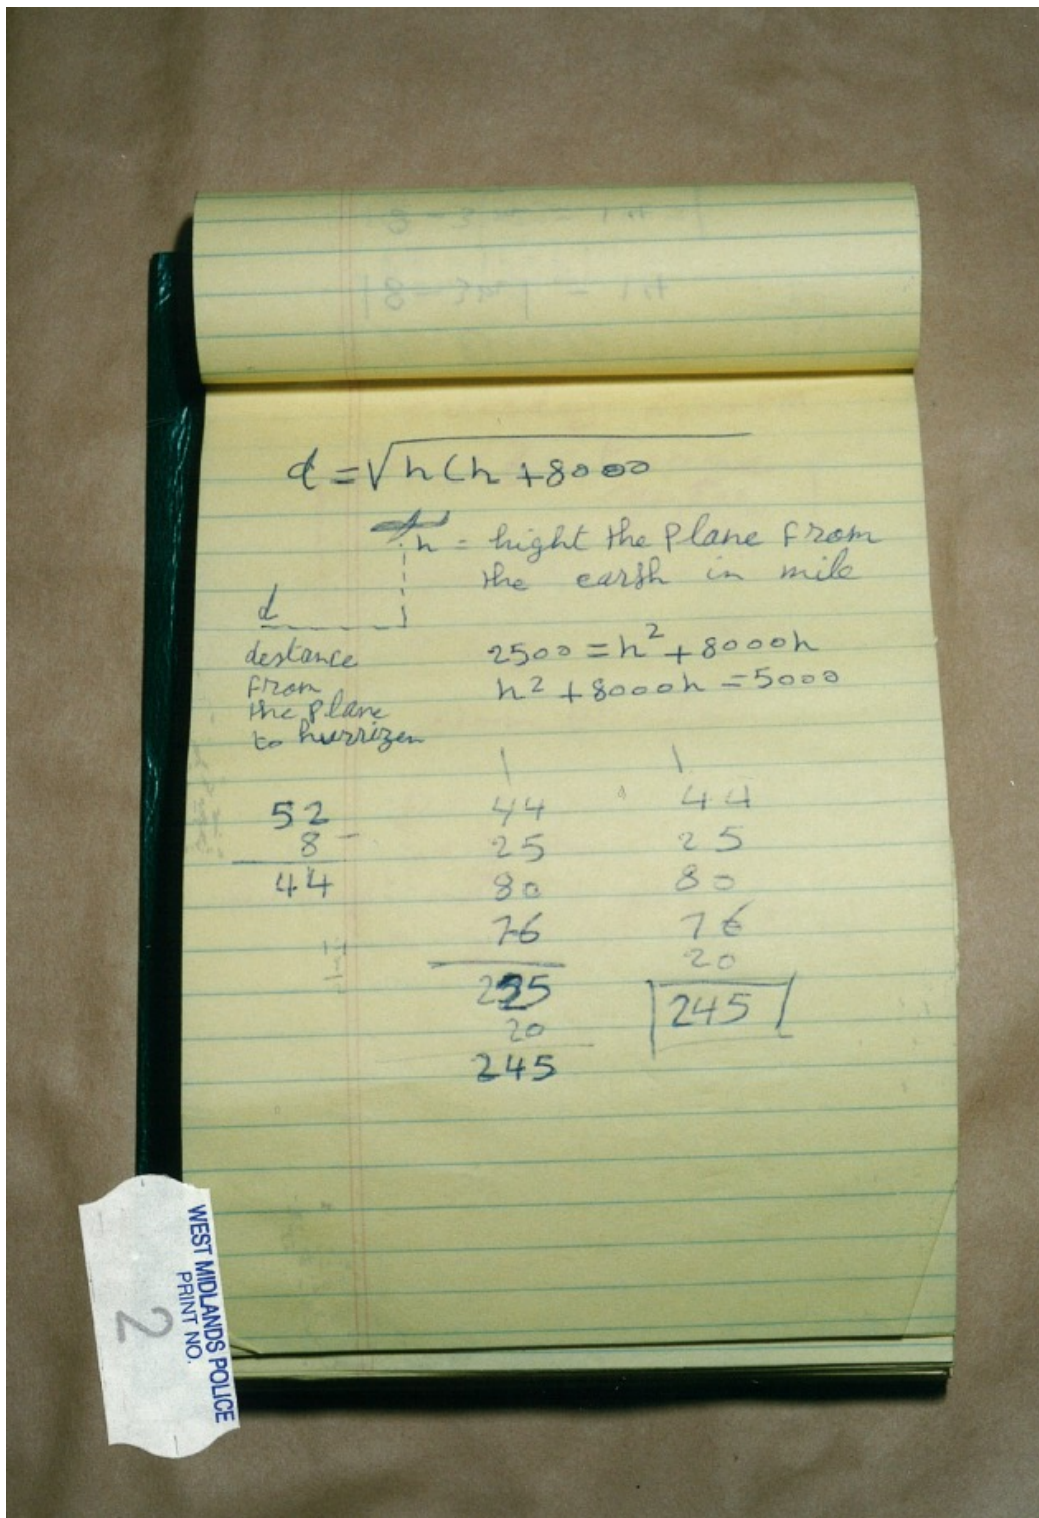 d = √h(h + 8000
h = hight the plane from
the earth in mile
d
destance
from
the plane
to hurrizen
2500 = h² + 8000h
h² + 8000h = 5000
52
8 -
44
44
25
80
76
20
245
44
25
80
76
20
245
WEST MIDLANDS POLICE
PRINT NO.
2